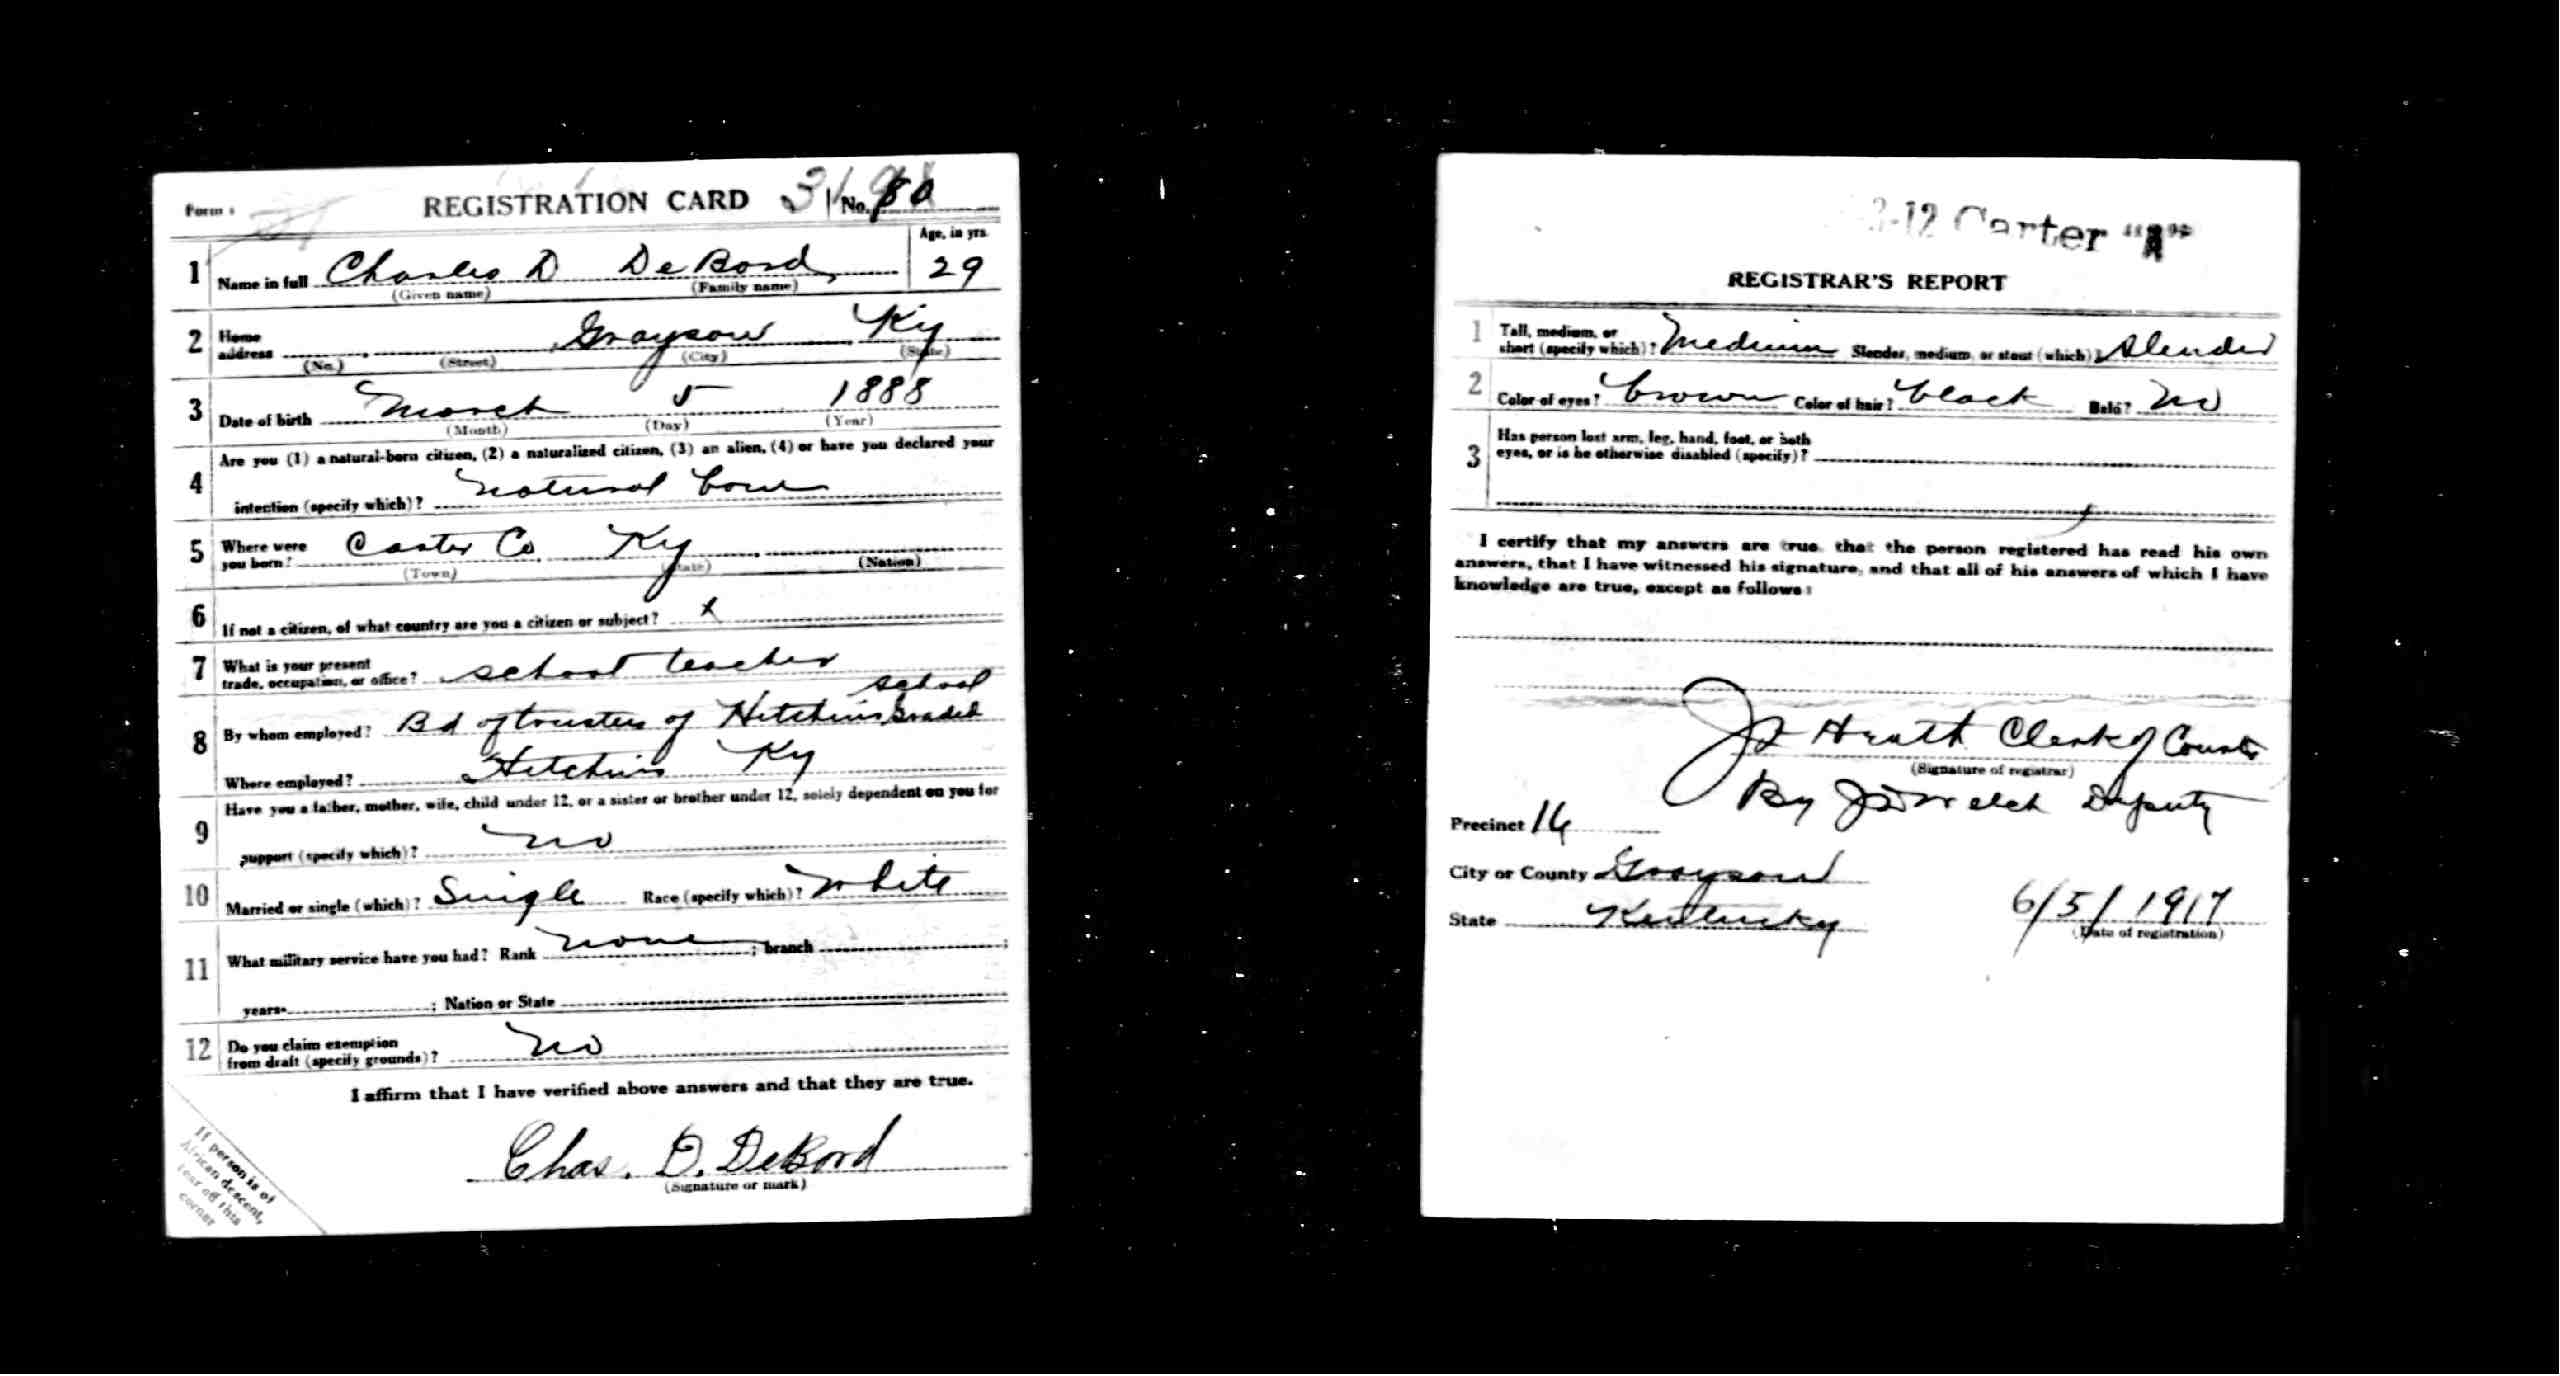 Form 1 REGISTRATION CARD No. 80
1 Name in full Charles D DeBord Age, in yrs. 29
(Given name) (Family name)
2 Home address Grayson Ky
(No.) (Street) (City) (State)
3 Date of birth March 5 1888
(Month) (Day) (Year)
4 Are you (1) a natural-born citizen, (2) a naturalized citizen, (3) an alien, (4) or have you declared your
intention (specify which)? natural born
5 Where were you born? Carter Co Ky
(Town) (State) (Nation)
6 If not a citizen, of what country are you a citizen or subject? x
7 What is your present trade, occupation, or office? school teacher
8 By whom employed? Bd of trustees of Hitchins Graded school
Where employed? Hitchins Ky
9 Have you a father, mother, wife, child under 12, or a sister or brother under 12, solely dependent on you for
support (specify which)? no
10 Married or single (which)? Single Race (specify which)? White
11 What military service have you had? Rank none ; branch ;
years ; Nation or State
12 Do you claim exemption from draft (specify grounds)? no
I affirm that I have verified above answers and that they are true.
Chas. D. DeBord
(Signature or mark)
If person is of
African descent,
tear off this
corner
-12 Carter "A"
REGISTRAR'S REPORT
1 Tall, medium, or short (specify which)? Medium Slender, medium, or stout (which)? Slender
2 Color of eyes? brown Color of hair? black Bald? No
3 Has person lost arm, leg, hand, foot, or both
eyes, or is he otherwise disabled (specify)?
I certify that my answers are true, that the person registered has read his own
answers, that I have witnessed his signature, and that all of his answers of which I have
knowledge are true, except as follows:
Heath Clerk of County
(Signature of registrar)
By Welch Deputy
Precinct 16
City or County Grayson
State Kentucky 6/5/1917
(Date of registration)